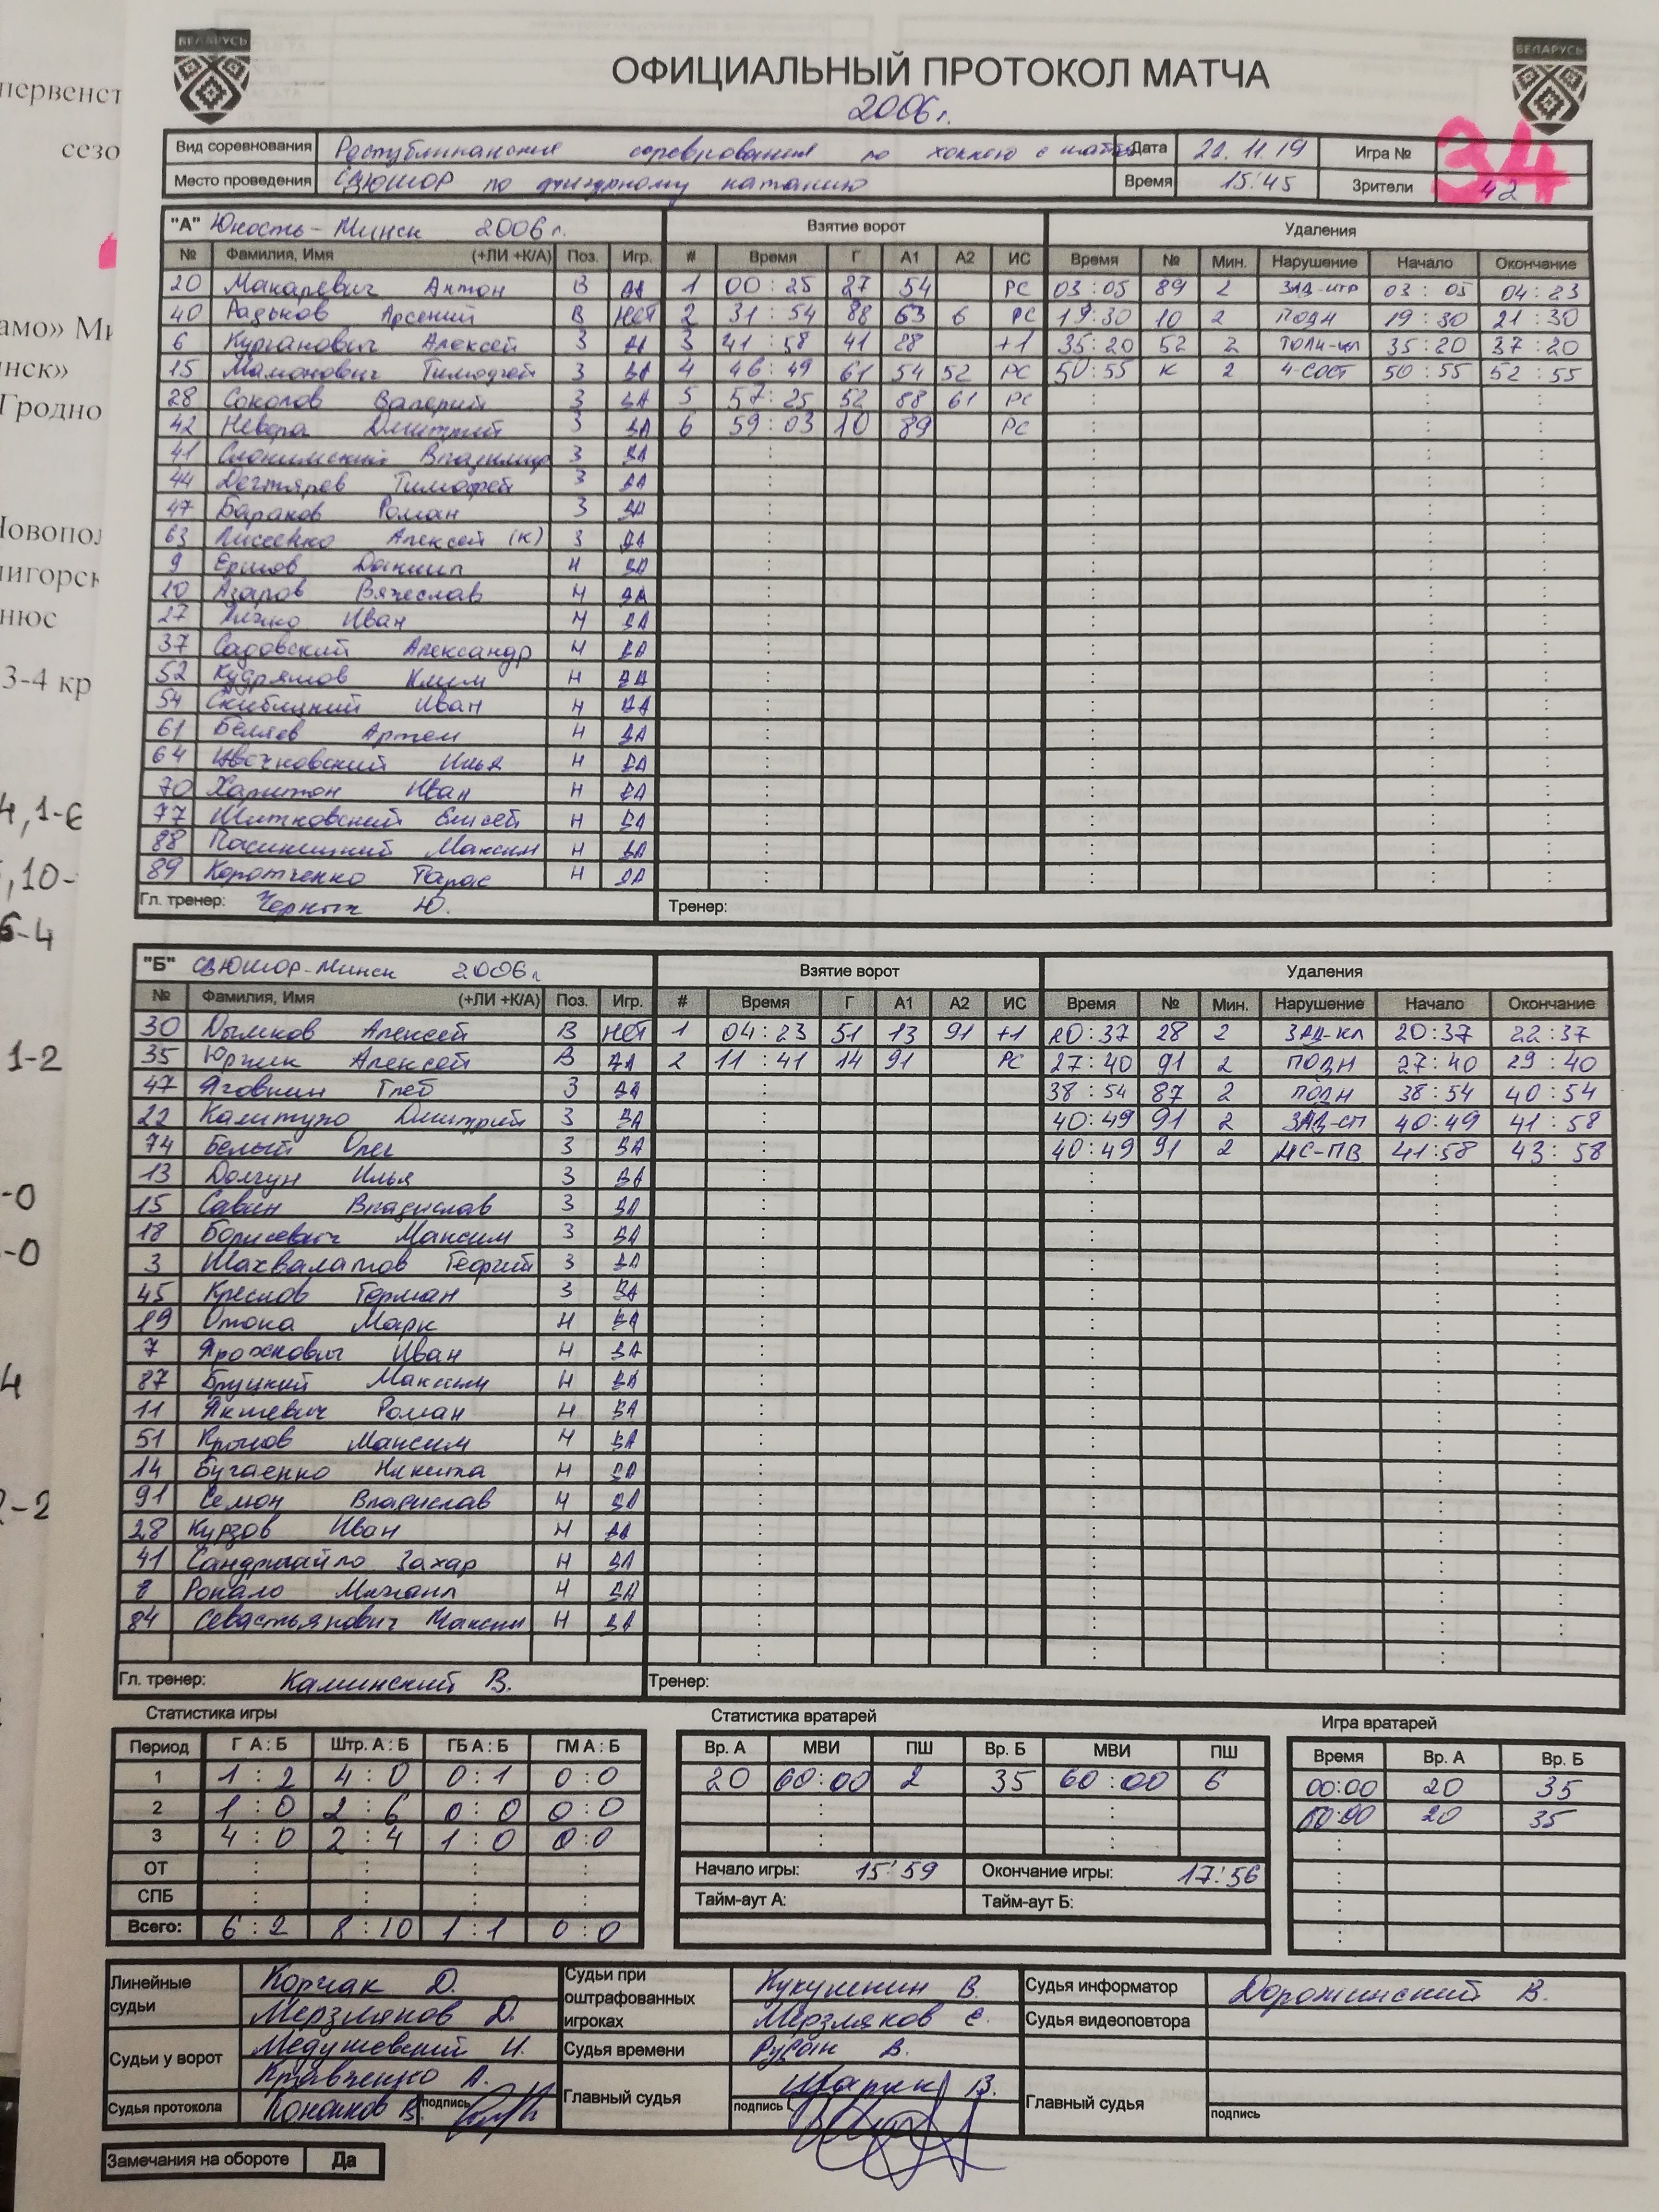 БЕЛАРУСЬ
БЕЛАРУСЬ
ОФИЦИАЛЬНЫЙ ПРОТОКОЛ МАТЧА
2006г.
Вид соревнования Республиканские соревнования по хоккею с шайбой Дата 22.11.19 Игра № 34
Место проведения СДЮШОР по фигурному катанию Время 15:45 Зрители 42
"А" Юность-Минск 2006г. Взятие ворот Удаления
№ Фамилия, Имя (+ЛИ +К/А) Поз. Игр. # Время Г А1 А2 ИС Время № Мин. Нарушение Начало Окончание
20 Макаревич Антон В ДА 1 00:25 27 54 РС 03:05 89 2 ЗАД-ИГР 03:05 04:23
40 Радьков Арсений В НЕТ 2 31:54 88 63 6 РС 19:30 10 2 ПОДН 19:30 21:30
6 Курганович Алексей З ДА 3 41:58 41 28 +1 35:20 52 2 ТОЛЧ-КЛ 35:20 37:20
15 Мамонович Тимофей З ДА 4 46:49 61 54 52 РС 50:55 К 2 Ч-СОСТ 50:55 52:55
28 Соколов Валерий З ДА 5 57:25 52 88 61 РС
42 Невера Дмитрий З ДА 6 59:03 10 89 РС
41 Слонимский Владимир З ДА
44 Дегтярев Тимофей З ДА
47 Баранов Роман З ДА
63 Лиссенко Алексей (К) З ДА
9 Ершов Даниил Н ДА
10 Азаров Вячеслав Н ДА
27 Иван Н ДА
37 Садовский Александр Н ДА
52 Кудряшов Клим Н ДА
54 Скиблицкий Иван Н ДА
61 Беляев Артем Н ДА
64 Цвечковский Илья Н ДА
70 Харитон Иван Н ДА
77 Шитковский Елисей Н ДА
88 Пасиницкий Максим Н ДА
89 Коротченко Тарас Н ДА
Гл. тренер: Черных Ю. Тренер:
"Б" СДЮШОР-Минск 2006г Взятие ворот Удаления
№ Фамилия, Имя (+ЛИ +К/А) Поз. Игр. # Время Г А1 А2 ИС Время № Мин. Нарушение Начало Окончание
30 Дымков Алексей В НЕТ 1 04:23 51 13 91 +1 20:37 28 2 ЗАД-КЛ 20:37 22:37
35 Юрчик Алексей В ДА 2 11:41 14 91 РС 27:40 91 2 ПОДН 27:40 29:40
47 Яговкин Глеб З ДА 38:54 87 2 ПОДН 38:54 40:54
22 Калитухо Дмитрий З ДА 40:49 91 2 ЗАД-СП 40:49 41:58
74 Белый Олег З ДА 40:49 91 2 НС-ПВ 41:58 43:58
13 Долгун Илья З ДА
15 Савин Владислав З ДА
18 Борисевич Максим З ДА
3 Шахвалатов Георгий З ДА
45 Креслов Герман З ДА
19 Отока Марк Н ДА
7 Ярохнович Иван Н ДА
87 Бруцкий Максим Н ДА
11 Якшевич Роман Н ДА
51 Крючов Максим Н ДА
14 Бугаенко Никита Н ДА
91 Семон Владислав Н ДА
28 Курзов Иван Н ДА
41 Сандригайло Захар Н ДА
8 Ронало Михаил Н ДА
84 Севастьянович Максим Н ДА
Гл. тренер: Каминский В. Тренер:
Статистика игры Статистика вратарей Игра вратарей
Период Г А : Б Штр. А : Б ГБ А : Б ГМ А : Б Вр. А МВИ ПШ Вр. Б МВИ ПШ Время Вр. А Вр. Б
1 1:2 4:0 0:1 0:0 20 60:00 2 35 60:00 6 00:00 20 35
2 1:0 2:6 0:0 0:0 60:00 20 35
3 4:0 2:4 1:0 0:0
ОТ Начало игры: 15:59 Окончание игры: 17:56
СПБ Тайм-аут А: Тайм-аут Б:
Всего: 6:2 8:10 1:1 0:0
Линейные судьи Корчак Д. Мерзляков Д.
Судьи при оштрафованных игроках Кукушенин В. Мерзляков С.
Судья информатор Дорожинский В.
Судья видеоповтора
Судьи у ворот Медушевский И. Кравченко А.
Судья времени Рудан В.
Главный судья Шарик В. подпись
Главный судья подпись
Судья протокола Конанков В. подпись
Замечания на обороте Да